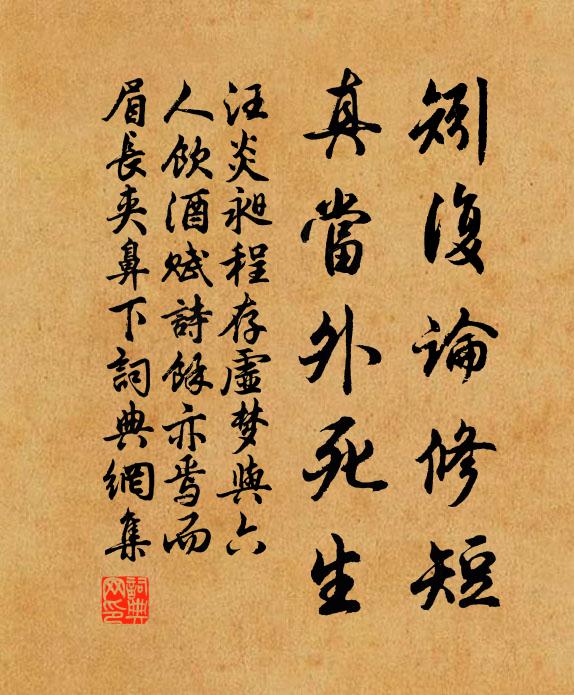 矧復論修短
真當外死生
汪炎昶程存虛梦與六
人飲酒賦詩餘亦焉而
眉長夾鼻下詞典網集
詞典网印